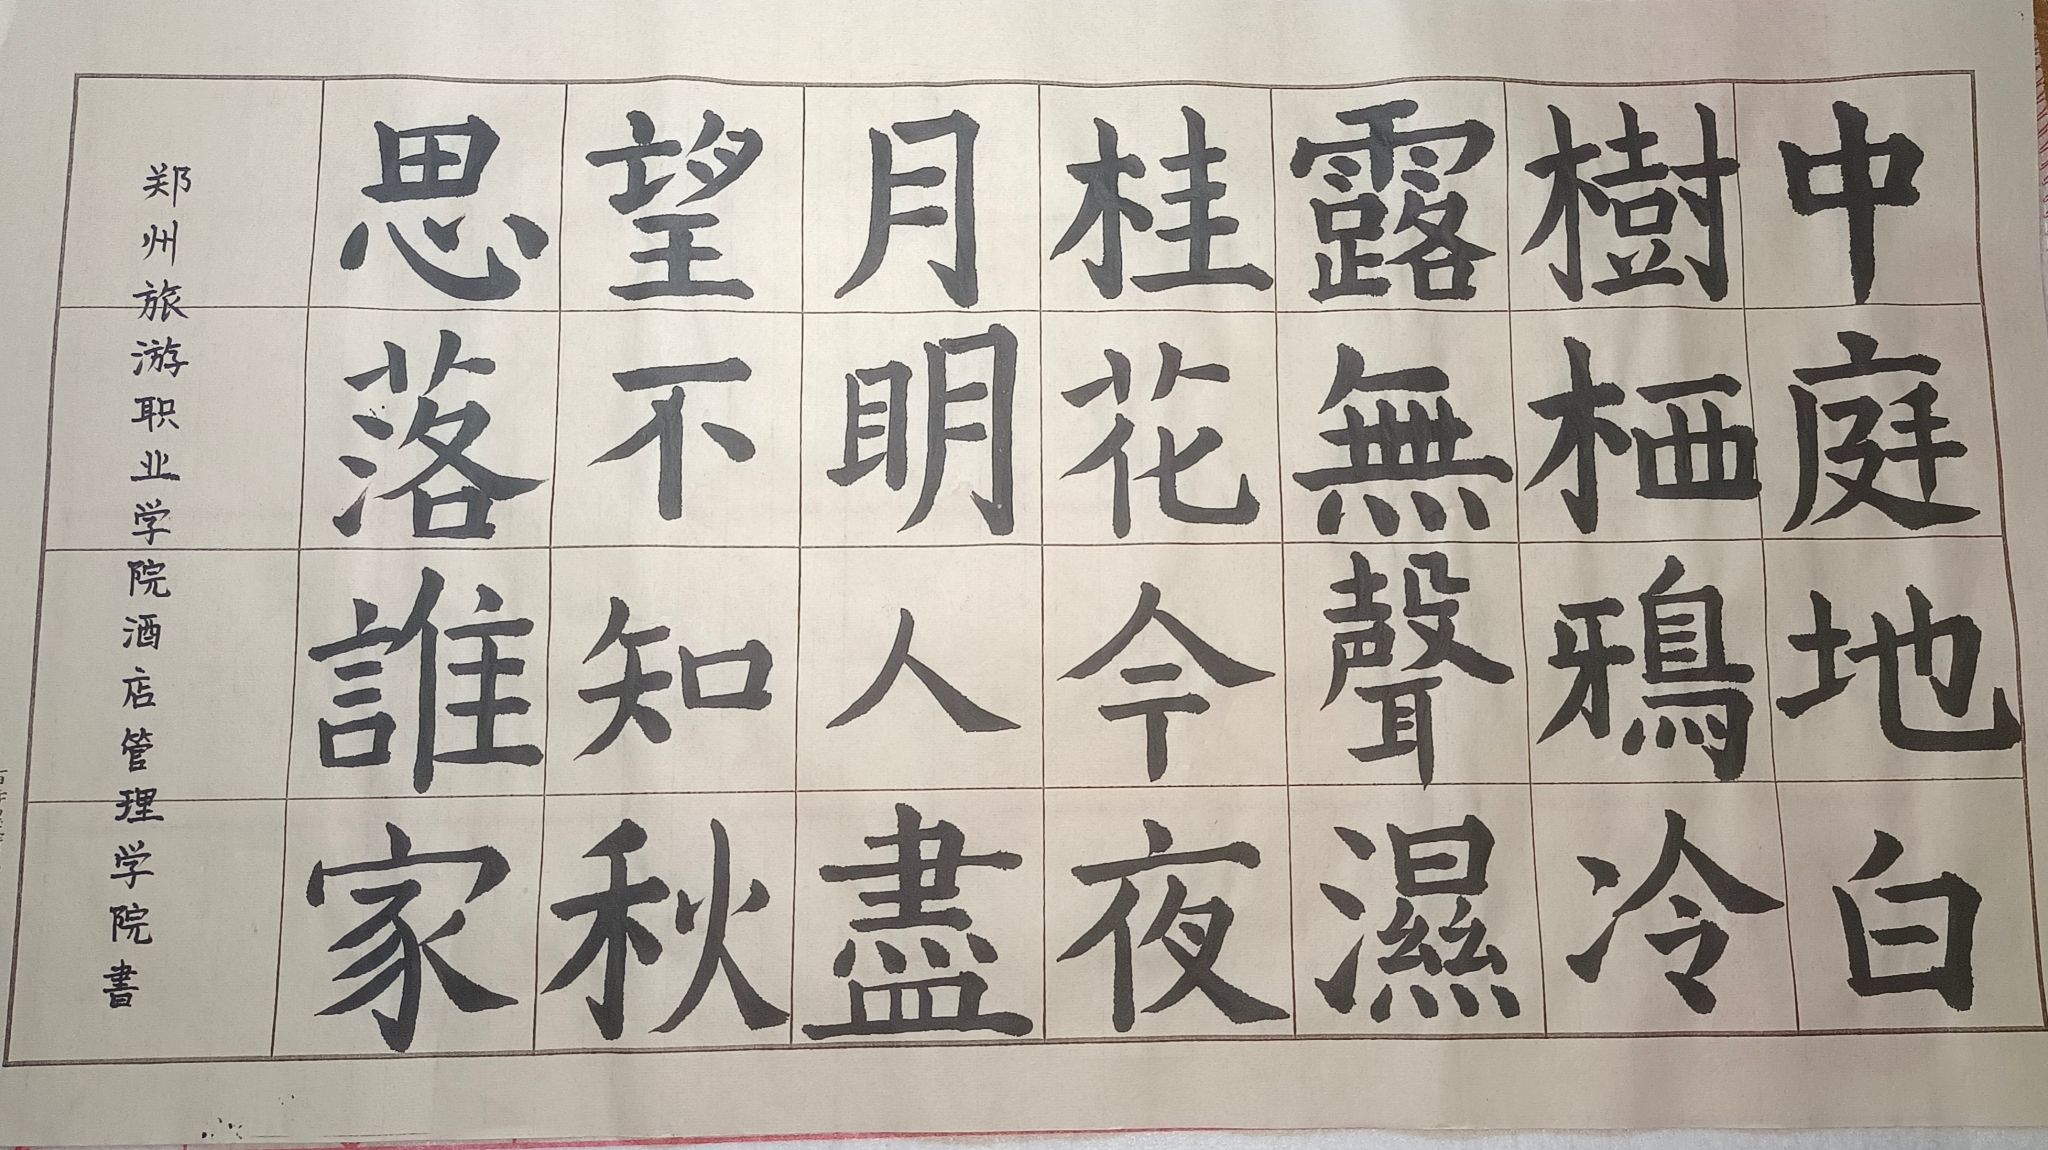 中庭地白
樹栖鴉冷
露無聲濕
桂花今夜
月明人盡
望不知秋
思落誰家
郑州旅游职业学院酒店管理学院書